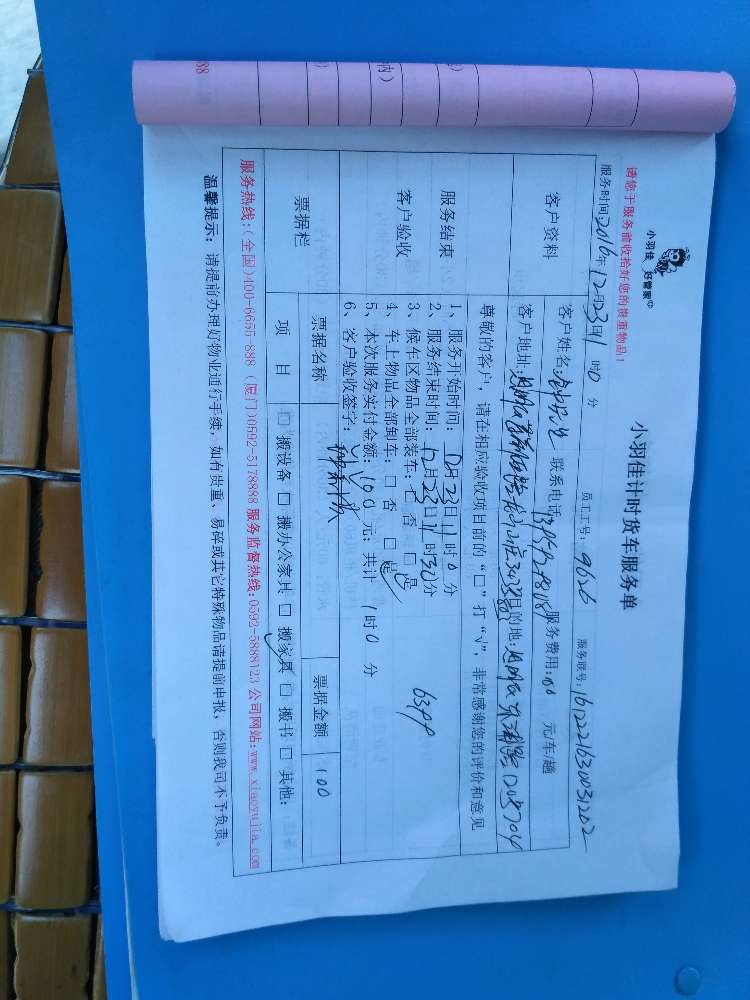 小羽佳 好管家
小羽佳计时货车服务单
请您于服务前收拾好您的贵重物品！
服务时间：2016年12月23日11时0分 员工工号：9626 服务联号：161221630031202
客户资料
客户姓名： 联系电话 服务费用：100元/车/趟
客户地址： 目的地：
尊敬的客户，请在相应验收项目前的“□”打“√”，非常感谢您的评价和意见
服务结束
客户验收
1、服务开始时间：12月23日11时0分
2、服务结束时间：12月23日11时30分
3、候车区物品全部装车：□否 □是
4、车上物品全部卸车：□否 □是
5、本次服务实付金额：100元；共计 1时0分
6、客户验收签字：
票据栏
票据名称 票据金额 100
项目 □搬设备 □搬办公家具 □搬家具 □搬书 □其他：
服务热线：(全国)400-6655-888 (厦门)0592-5178888 服务监督热线:0592-5888123 公司网站:www.xiaoyujia.com
温馨提示：请提前办理好物业通行手续，如有贵重、易碎或其它特殊物品请提前申报，否则我司不予负责。